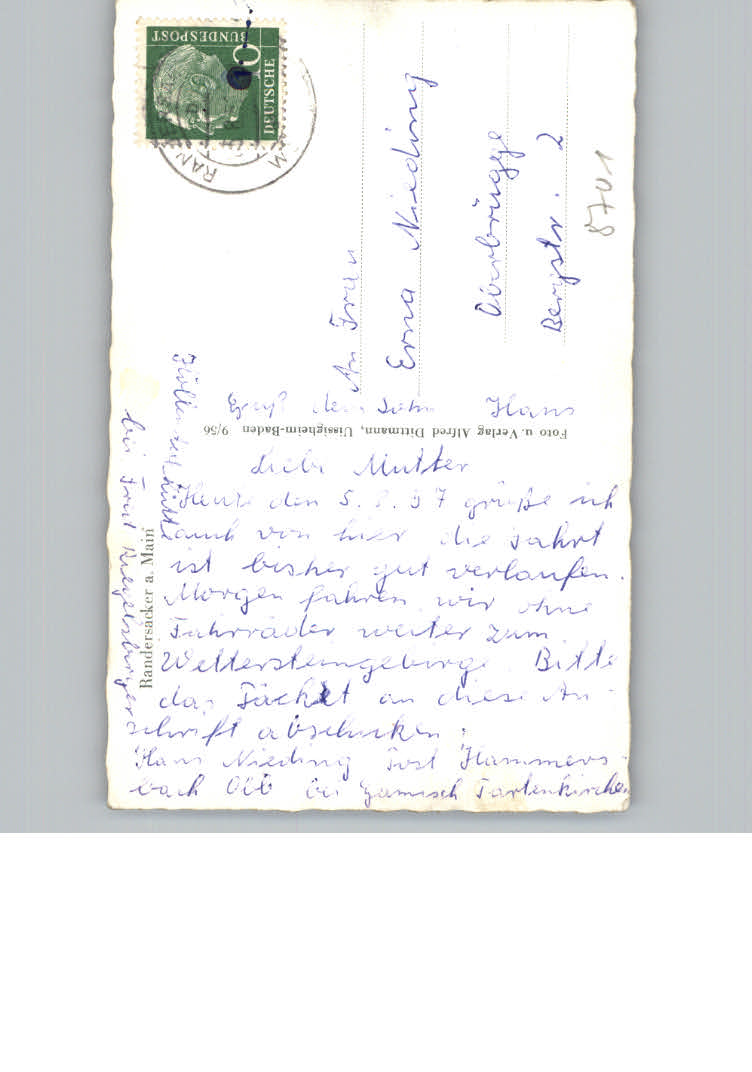 DEUTSCHE
BUNDESPOST
10
An Frau
Erna Nieding
Oberbrügge
Bergstr. 2
8701
Foto u. Verlag Alfred Dittmann, Uissigheim-Baden 9/56
Randersacker a. Main
Liebe Mutter
Heute den 5. 8. 57 grüße ich
auch von hier die Fahrt
ist bisher gut verlaufen.
Morgen fahren wir ohne
Fahrräder weiter zum
Wettersteingebirge. Bitte
das Päckt an diese An-
schrift abschicken:
Hans Nieding Post Hammers-
bach Obb bei Garmisch Partenkirchen
bei Frau
Höllentalhütte
Gruß dein Sohn Hans